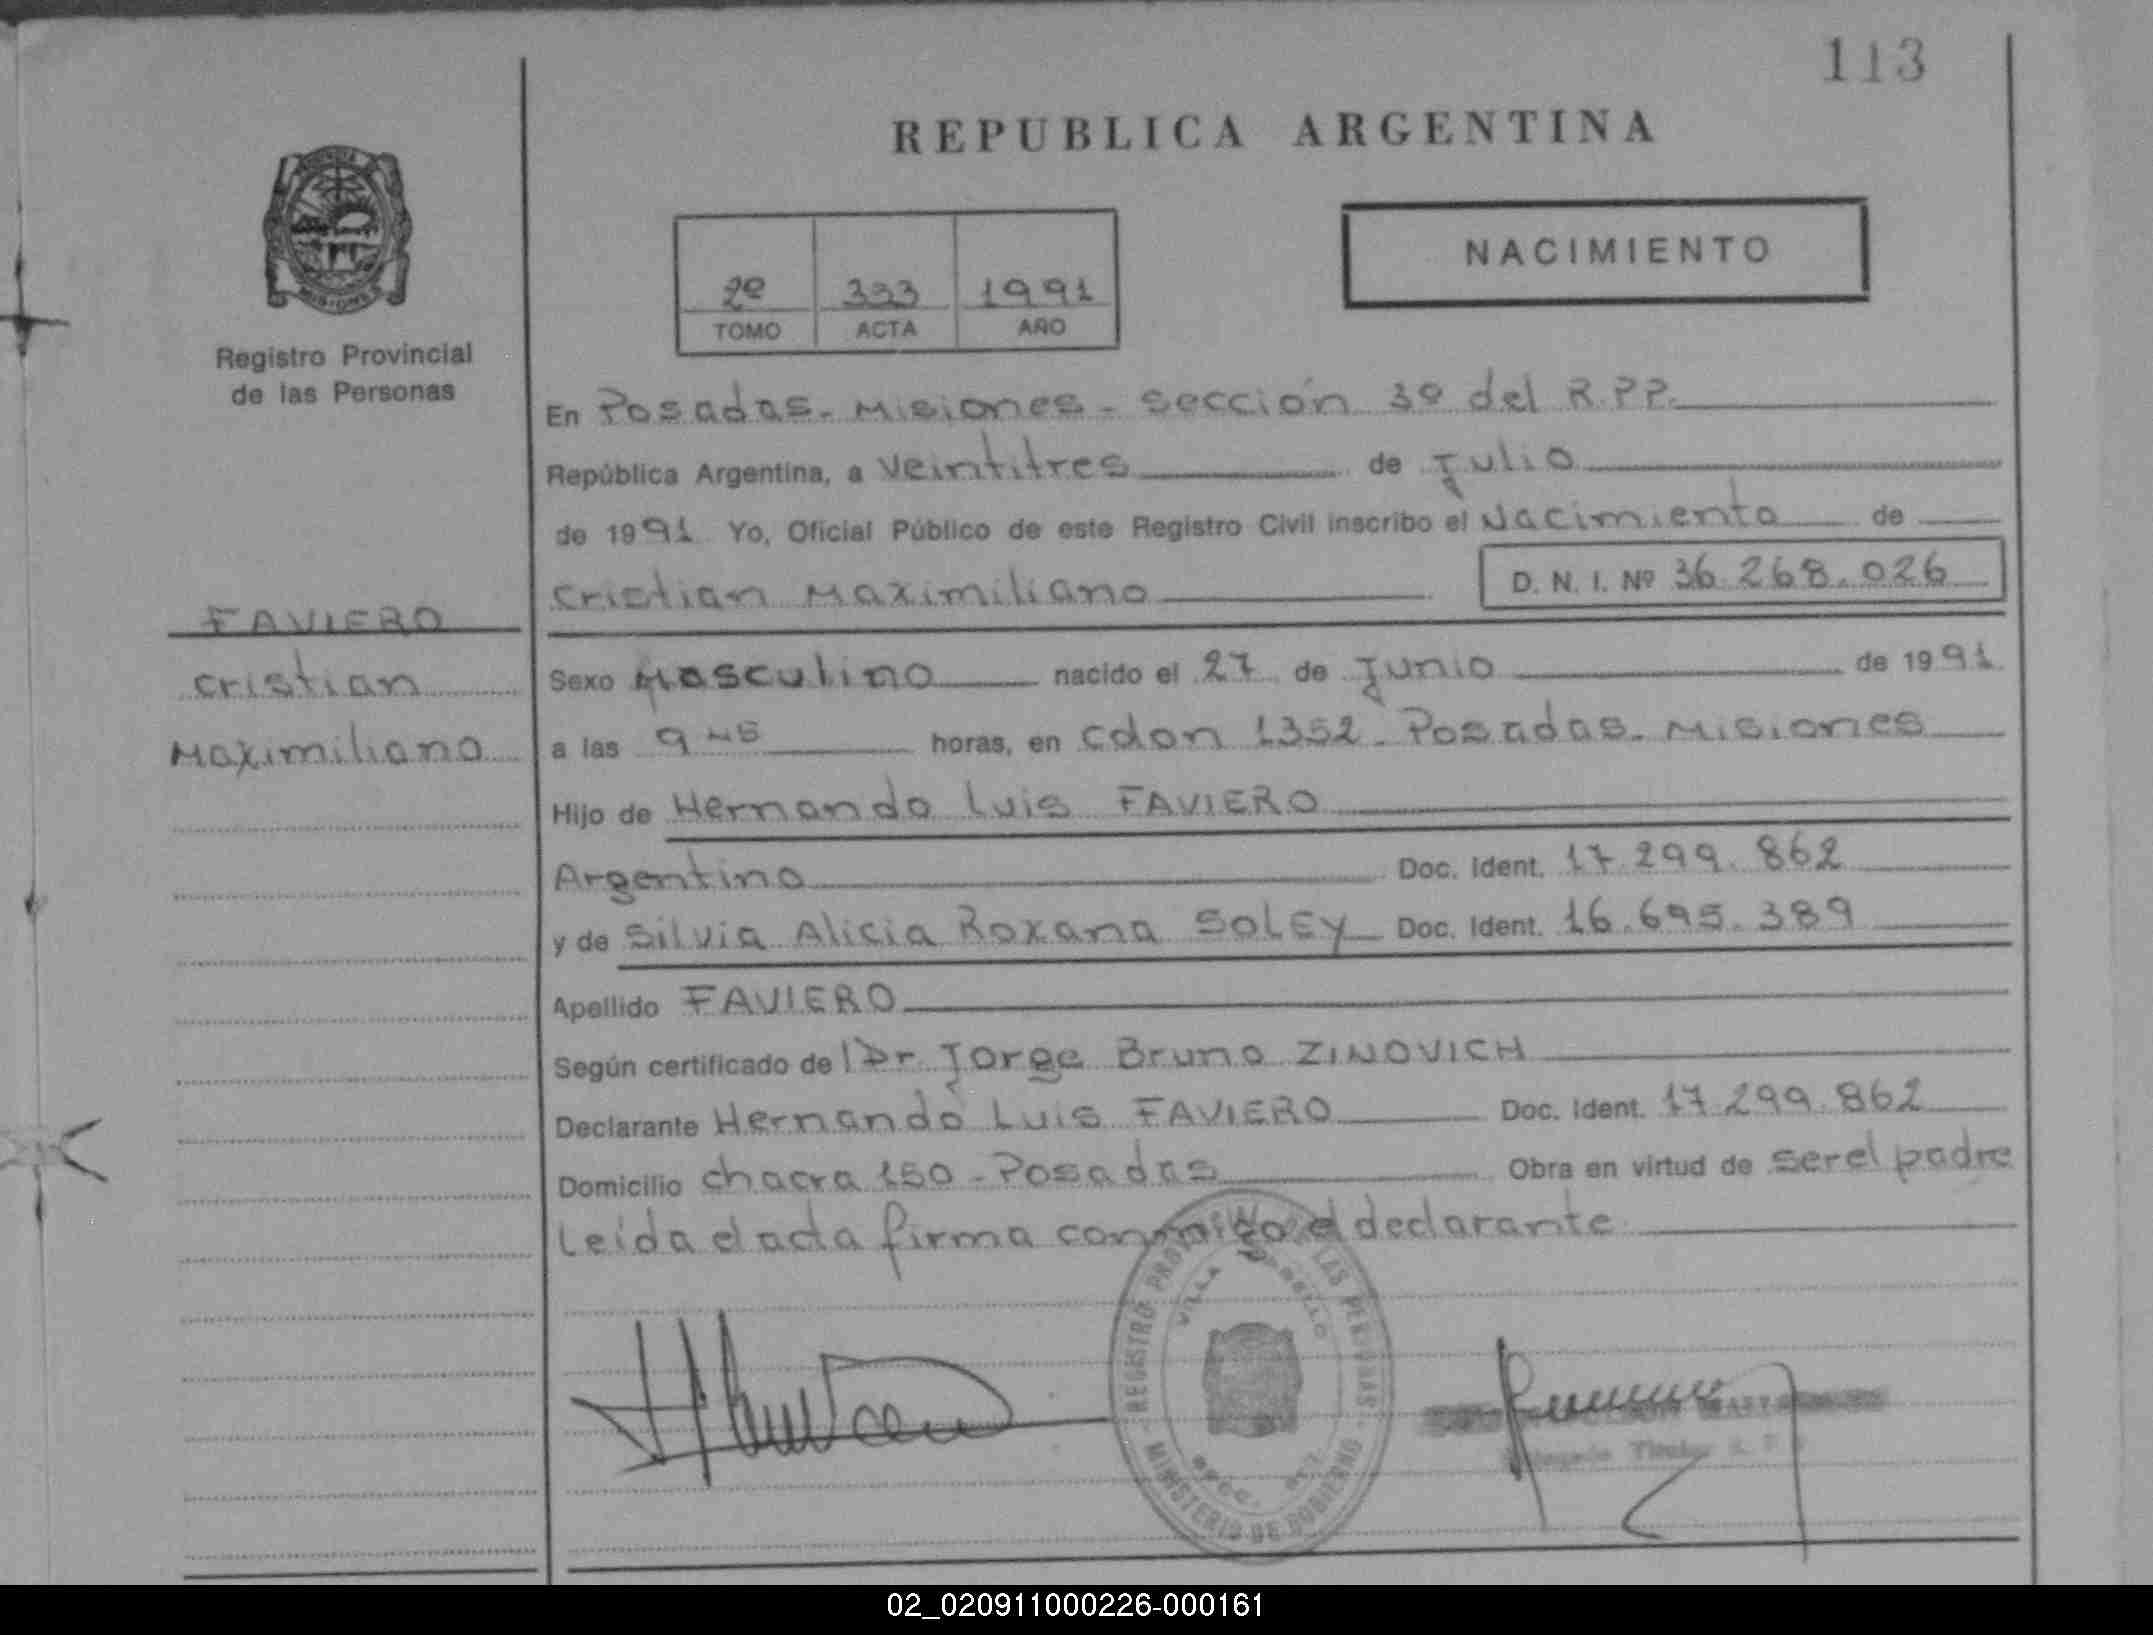 113
REPUBLICA ARGENTINA
NACIMIENTO
2º 333 1991
TOMO ACTA AÑO
Registro Provincial
de las Personas
En Posadas - Misiones - Sección 3º del R.P.P.
República Argentina, a Veintitres de Julio
de 1991 Yo, Oficial Público de este Registro Civil inscribo el Nacimiento de
Cristian Maximiliano D. N. I. Nº 36.268.026
FAVIERO
Cristian
Maximiliano
Sexo Masculino nacido el 27 de Junio de 1991
a las 9 horas, en Colon 1352 - Posadas - Misiones
Hijo de Hernando Luis FAVIERO
Argentino Doc. Ident. 17.299.862
y de Silvia Alicia Roxana SOLEY Doc. Ident. 16.695.389
Apellido FAVIERO
Según certificado de Dr. Jorge Bruno ZINOVICH
Declarante Hernando Luis FAVIERO Doc. Ident. 17.299.862
Domicilio Chacra 150 - Posadas Obra en virtud de ser el padre
Leida el acta firma conmigo el declarante
REGISTRO LAS PERSONAS
VILLA
MINISTERIO DE GOBIERNO
Titular
02_020911000226-000161